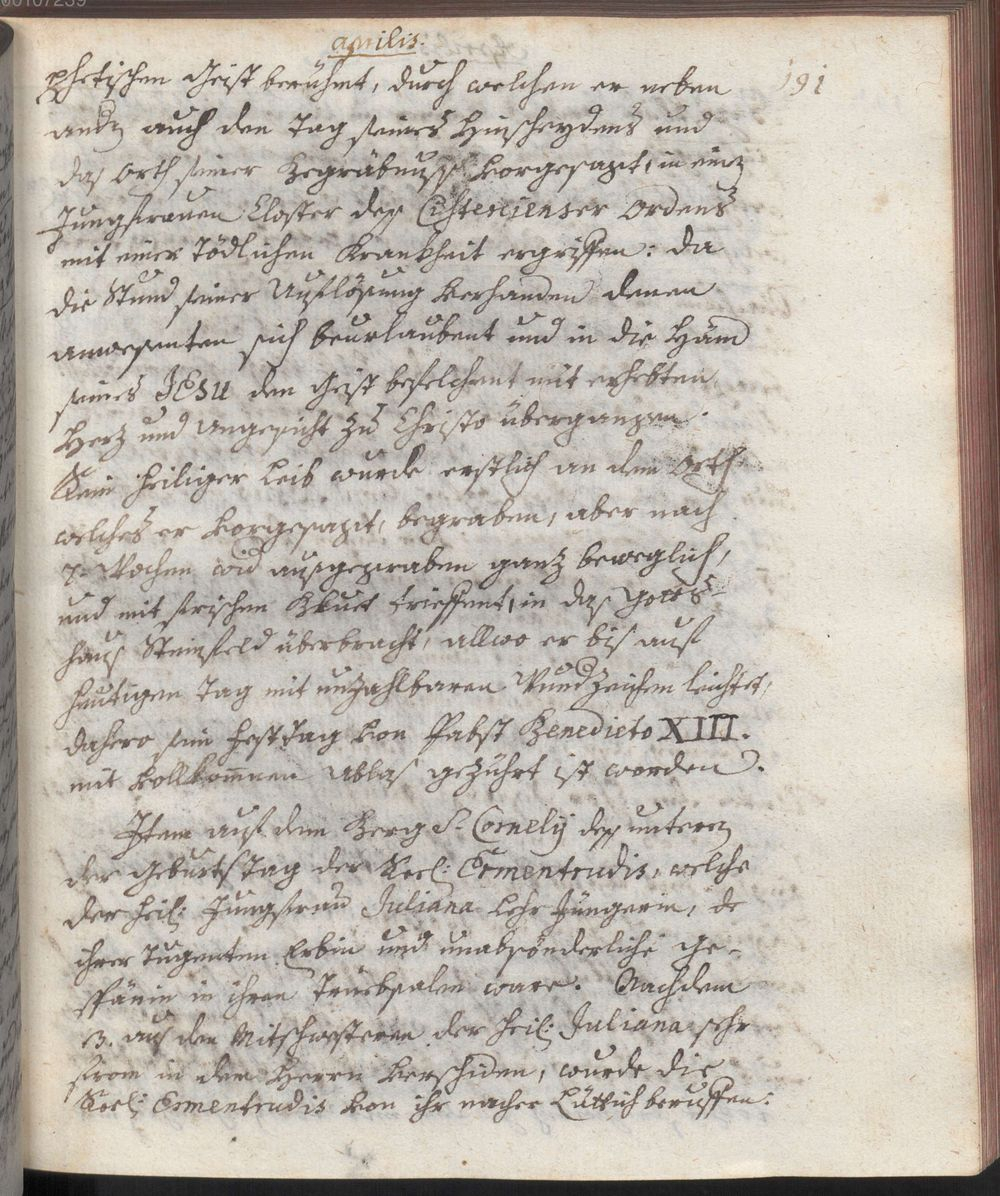 00107239
aprilis.
191
phetischen Geist berühmt, durch welchen er neben
andn auch den Tag seines Hinscheydens und
das Orth seiner Begräbnuß vorgesagt, in einem
Jungfrauen Closter deß Cistercienser Ordens
mit einer Tödlichen Krankheit ergriffen: da
die Stund seiner Auflösung verhanden denen
anwesenten sich beurlaubent und in die Händ
seines JESU den Geist befelchent mit erhebten
Hertz und Angesicht zu Christo übergangen.
Sein heiliger Leib wurde erstlich an dem Orth
welches er vorgesagt, begraben, aber nach
7. Wochen wid außgegraben gantz beweglich,
und mit frischen Bluet trieffent, in das Gotts-
hauß Steinfeld überbracht, allwo er biß auf
heutigen Tag mit unzahlbaren Wundzeichen leichtet,
dahero sein Festtag von Pabst Benedicto XIII.
mit vollkommnen Ablaß geziehrt ist worden.
Item auf dem Berg S. Cornelij deß untern
der Geburtstag der Seel: Ermentrudis, welche
der heil: Jungfrau Juliana Lehr Jüngerin, de
ihrer Tugenten Erbin und unabsönderliche Ge-
spänin in ihren Trüebsalen ware. Nachdem
3. auß den Mitschwestern der heil: Juliana sehr
from in dem Herrn verschiden, wurde die
Seel: Ermentrudis von ihr nacher Lüttich beruffen: